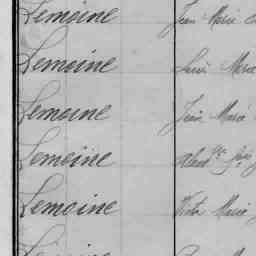 Lemoine Jean Marie
Lemoine Louis Marie
Lemoine Jean Marie
Lemoine
Lemoine Victor Marie
Lemoine